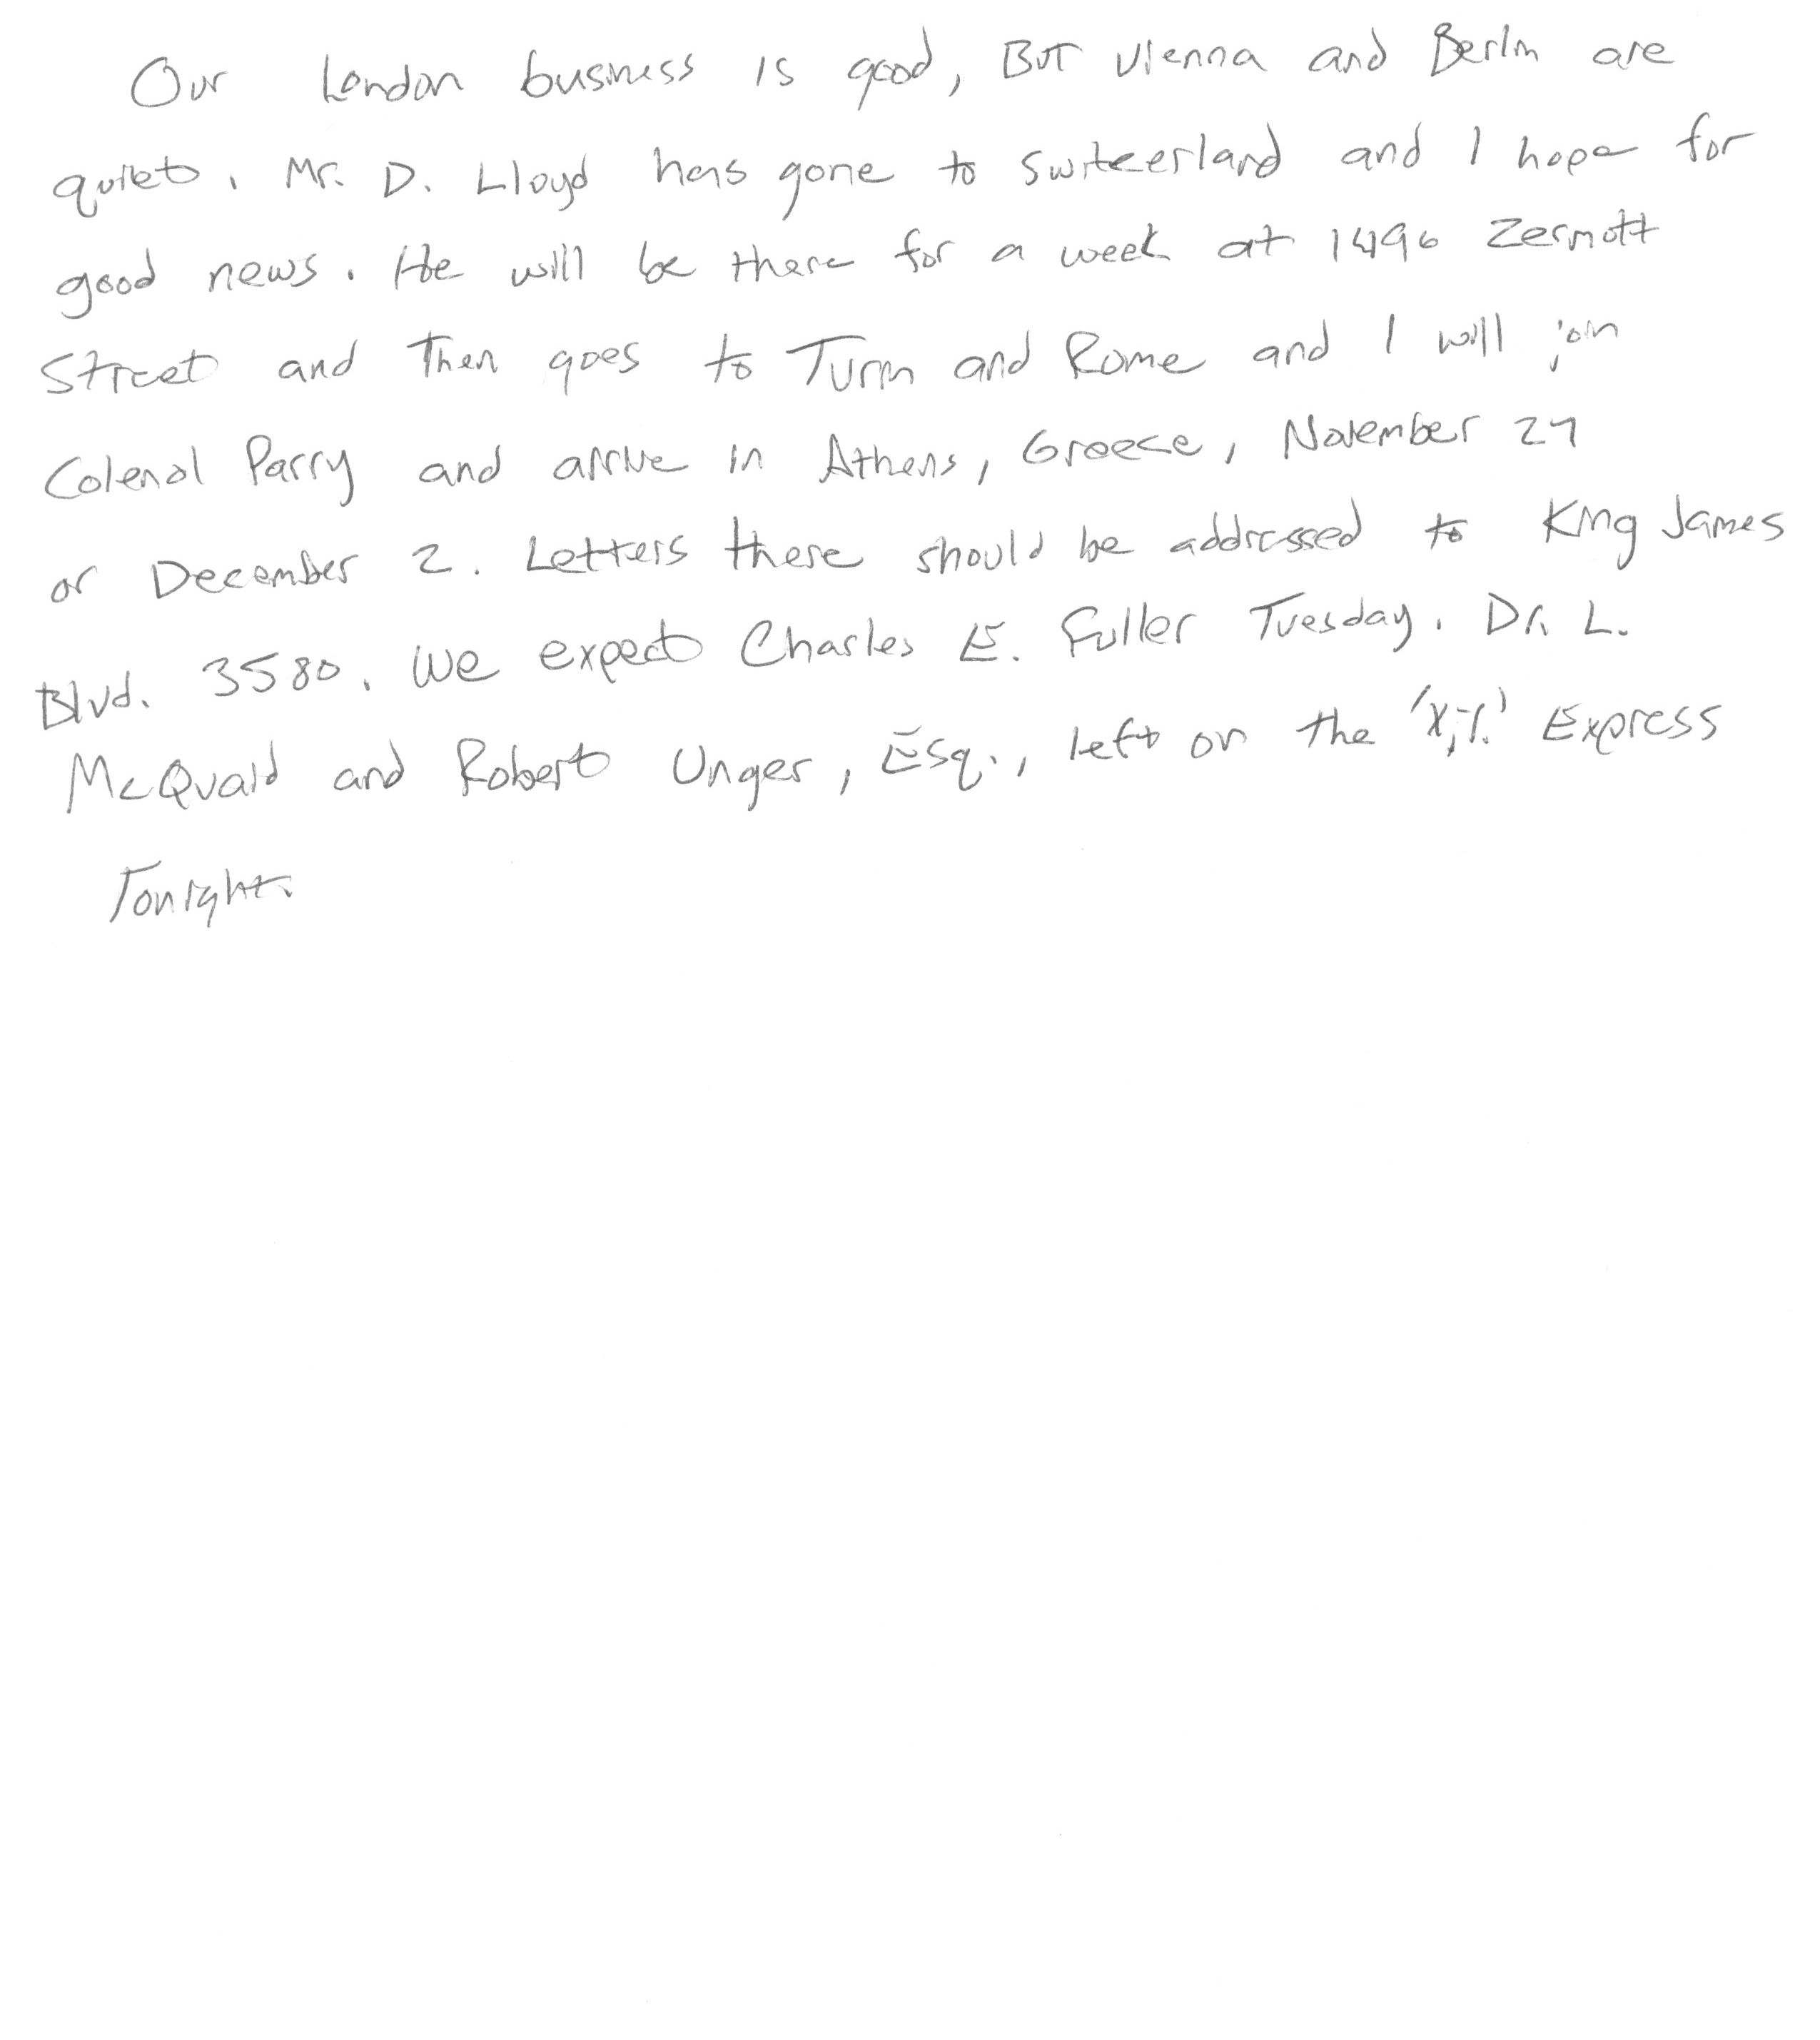 Our London business is good, But Vienna and Berlin are
quiet. Mr. D. Lloyd has gone to Switeerland and I hope for
good news. He will be there for a week at 1496 Zermott
Street and Then goes to Turin and Rome and I will join
Colenol Parry and arrive in Athens, Greece, November 27
or December 2. Letters there should be addressed to King James
Blvd. 3580. We expect Charles E. Fuller Tuesday. Dr. L.
McQuaid and Robert Unger, Esq., left on the Express
Tonight.